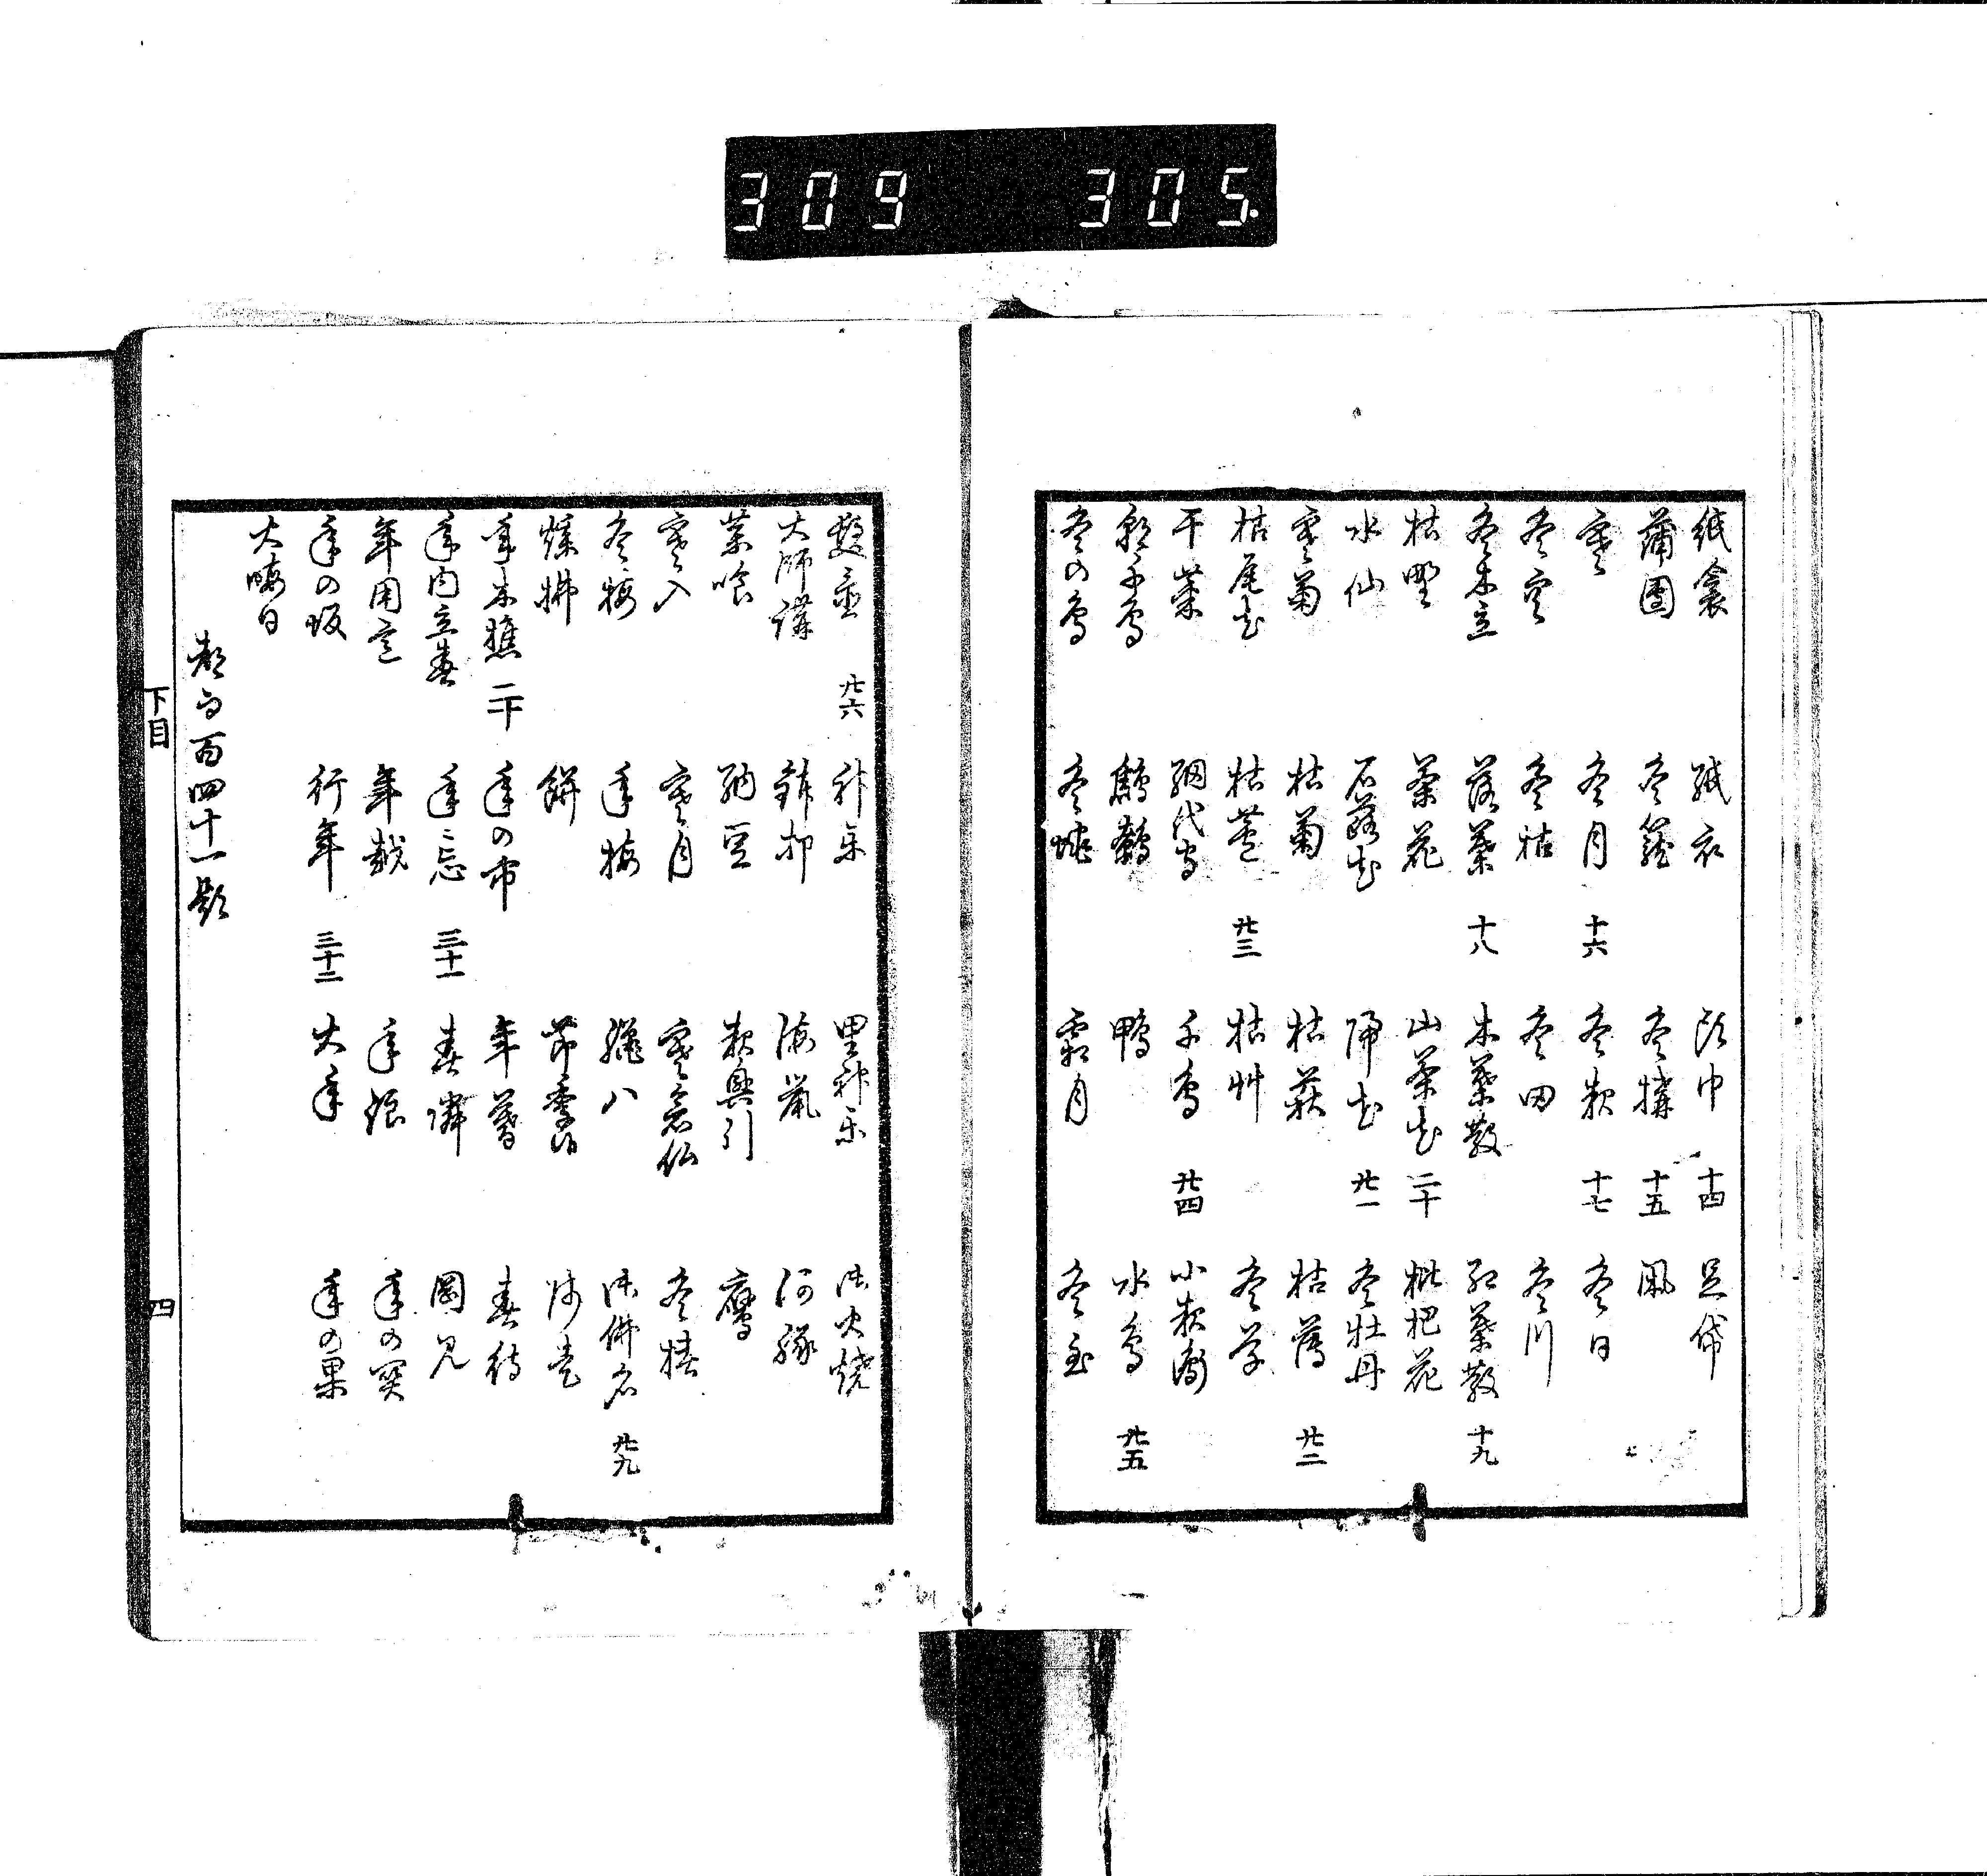 309 305.
紙衾 紙衣 頭巾 十四 足袋
蒲團 冬籠 冬構 十五 風
寒 冬月 十六 冬夜 十七 冬日
冬空 冬枯 冬田 冬川
冬木立 落葉 十八 木葉散 紅葉散 十九
枯野 茶花 山茶花 二十 枇杷花
水仙 石蕗花 帰花 廿一 冬牡丹
寒菊 枯菊 枯萩 枯薄 廿二
枯尾花 枯芦 廿三 枯艸 冬草
干菜 網代守 千鳥 廿四 小夜千鳥
鷦鷯 鴨 水鳥 廿五
冬の鳥 冬蝿 霜月 冬至
廿六 神楽 里神楽 御火焼
大師講 鉢叩 海鼠 河豚
薬喰 納豆 夜興引 鷹
寒入 寒月 寒念仏 冬椿
冬梅 年梅 臘八 御佛名 廿九
煤拂 餅 節季候
年木樵 三十 年の市 年暮 春待
年内立春 年忘 三十一 春隣 岡見
年用意 年越
年の坂 行年 三十二 大年 年の果
大晦日
都而百四十一題
下目 四